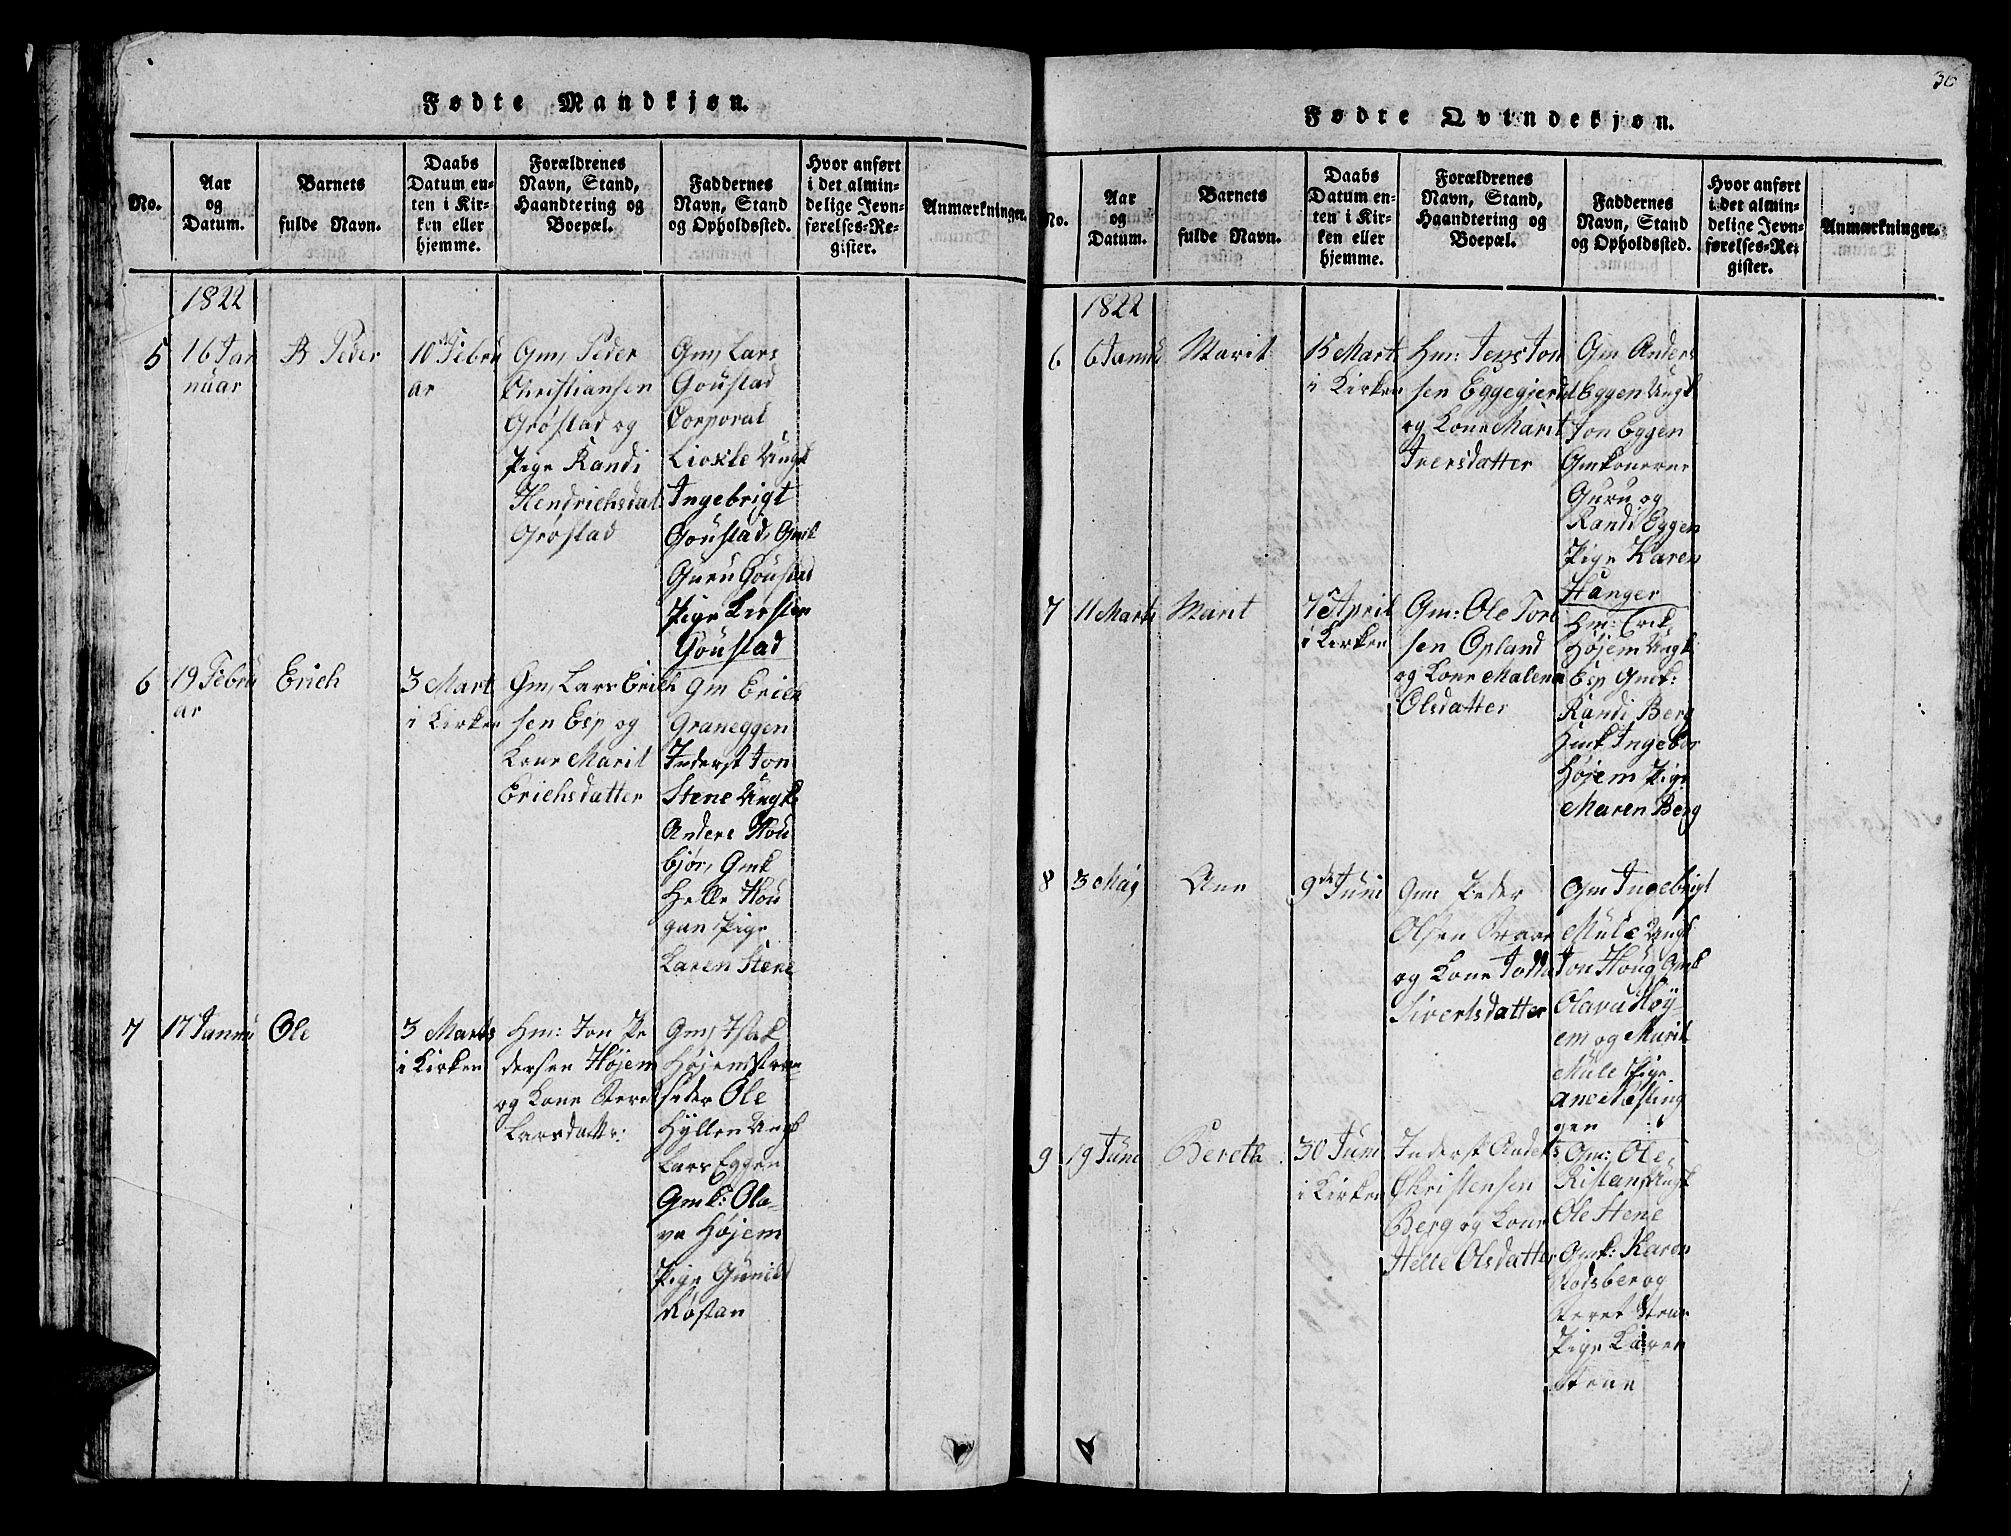 Fødte Mandkjøn.
No.
Aar
og
Datum.
Barnets
fulde Navn.
Daabs
Datum en-
ten i Kir-
ken eller
hjemme.
Forældrenes
Navn, Stand,
Haandtering og
Boepæl.
Faddernes
Navn, Stand
og Opholdssted.
Hvor anført
i det almin-
delige Jevn-
førelses-Re-
gister.
Anmærkninger.
1822
5
16 Jan
nuar
B Peder
10 Febru
ar
Gm, Peder
Christiansen
Grøstad og
Pige Randi
Hendrichsdat
Grøstad
Gm, Lars
Goustad
Corporal
Ungk
Ingebrigt
Goustad, Gmk
Guru Goustad
Pige Kirsten
Goustad
6
19 Febru
ar
Erich
3 Mart
i Kirken
Gm, Lars Erich
sen Esp og
Kone Marit
Erichsdatter
Gm Erich
Graneggen
Inderst Jon
Stene Ungk
Anders Hou
bjør, Gmk
Helle Hou
gan Pige
Karen Stene
7
17 Januu
Ole
3 Marts
i Kirken
Hm: Jon Pe
dersen Højem
og Kone Beret
Larsdattr:
Gm, Isak
Højem
Ole
Hyllen Ungk
Lars Eggen
Gmk: Ola-
va Højem
Pige Gunild
Røstan
36
Fødte Qvindekjøn.
No.
Aar
og
Datum.
Barnets
fulde Navn.
Daabs
Datum en-
ten i Kir-
ken eller
hjemme.
Forældrenes
Navn, Stand,
Haandtering og
Boepæl.
Faddernes
Navn, Stand
og Opholdssted.
Hvor anført
i det almin-
delige Jevn-
førelses-Re-
gister.
Anmærkninger.
1822
6
6 Januu
Marit
15 Mart
i Kirken
Hm: Jens Jon
sen Eggegjerdet
og Kone Marit
Iversdatter
Gm Anders
Eggen Ungk
Jon Eggen
Gmkonerne
Guru og
Randi Eggen
Pige Karen
Hanger
7
11 Marts
Marit
7 April
i Kirken
Gm: Ole Tor
sen Opland
og Kone Malena
Olsdatter
Hm: Erik
Højem Ungk
Esp Gmk:
Randi Berg
Hmk Ingebor
Højem Pige
Maren Berg
8
3 Maj
Ane
9de Juni
Gm Peder
Olsen
og Kone
Sivertsdatter
Gm Ingebrigt
Mule Ungk
Jon Houg Gmk
Olava Høy-
em og Marit
Mule Pige
gen
9
19 Juni
Bereth
30 Juni
i Kirken
Inderst Anders
Christensen
Berg og Kone
Helle Olsdatter
Gm: Ole
Ristan, Ungk
Ole Stene
Gmk: Karen
og
Beret
Pige Karen
Stene